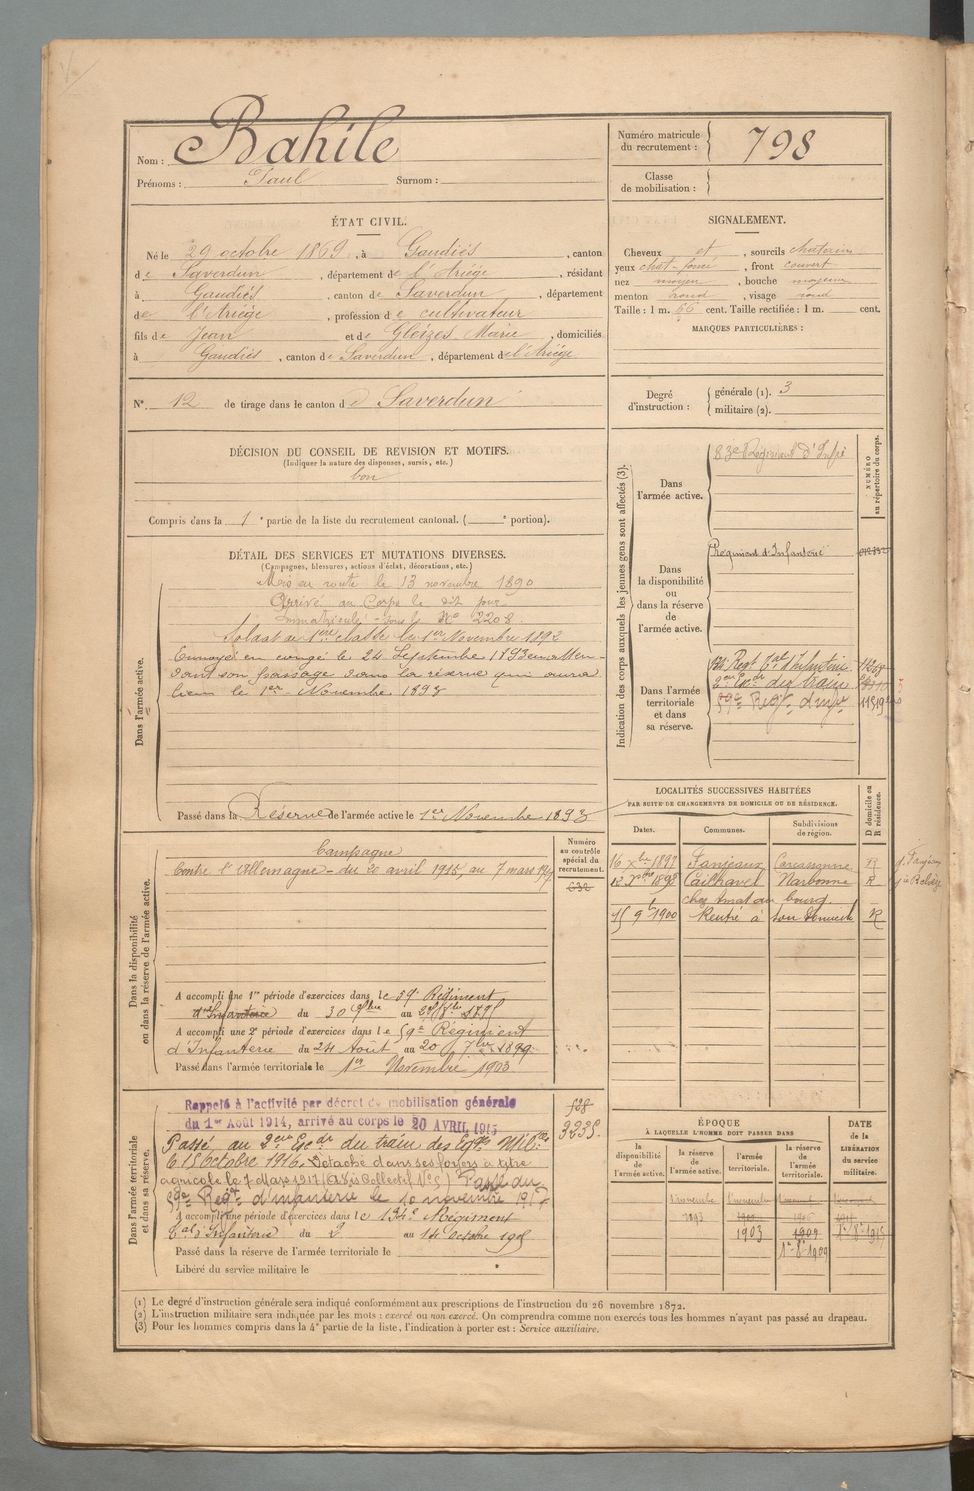 Nom : Bahile
Prénoms : Paul Surnom :
Numéro matricule du recrutement : 798
Classe de mobilisation :
ÉTAT CIVIL.
Né le 29 octobre 1869, à Gaudiès, canton
de Saverdun, département de l'Ariége, résidant
à Gaudiès, canton de Saverdun, département
de l'Ariège, profession de cultivateur
fils de Jean et de Gleizes Marie, domiciliés
à Gaudiès, canton de Saverdun, département de l'Ariége
N° 12 de tirage dans le canton de Saverdun
SIGNALEMENT.
Cheveux et, sourcils chatains
yeux chat-foncé, front couvert
nez moyen, bouche moyenne
menton rond, visage rond
Taille : 1 m. 66 cent. Taille rectifiée : 1 m. cent.
MARQUES PARTICULIÈRES :
Degré d'instruction : générale (1). 3
militaire (2).
DÉCISION DU CONSEIL DE REVISION ET MOTIFS.
(Indiquer la nature des dispenses, sursis, etc.)
bon
Compris dans la 1e partie de la liste du recrutement cantonal. ( e portion).
DÉTAIL DES SERVICES ET MUTATIONS DIVERSES.
(Campagnes, blessures, actions d'éclat, décorations, etc.)
Dans l'armée active.
Mis en route le 13 novembre 1890
Arrivé au Corps le dit jour
Immatriculé sous le N° 2208.
Soldat de 1ère classe le 1er Novembre 1892
Envoyé en congé le 24 Septembre 1893 en atten-
dant son passage dans la réserve qui aura
lieu le 1er Novembre 1893
Passé dans la Réserve de l'armée active le 1er Novembre 1893
Indication des corps auxquels les jeunes gens sont affectés (3).
NUMÉRO au répertoire du corps.
Dans l'armée active.
83e Régiment d'Infie
Dans la disponibilité ou dans la réserve de l'armée active.
Régiment d'Infanterie
Dans l'armée territoriale et dans sa réserve.
134 Regt tal d'Infanterie
2eme Escdr du train
59e Regt d'infie
LOCALITÉS SUCCESSIVES HABITÉES
PAR SUITE DE CHANGEMENTS DE DOMICILE OU DE RÉSIDENCE.
Dates. Communes. Subdivisions de région. D domicile ou R résidence.
16 Xbre 1897 Fanjeaux Carcassonne R
1898 Cailhavel Narbonne R
bourg.
15 9b 1900 Rentré à son domicile R
Dans la disponibilité ou dans la réserve de l'armée active.
Numéro au contrôle spécial du recrutement.
Campagne
Contre l'Allemagne - du 20 avril 1915, au 7 mars 1917
A accompli une 1re période d'exercices dans le 59e Régiment
d'Infanterie du 30 au
A accompli une 2e période d'exercices dans le 59e Régiment
d'Infanterie du 24 Août au 20 7bre 1899
Passé dans l'armée territoriale le 1er Novembre 1903
Dans l'armée territoriale et dans sa réserve.
Rappelé à l'activité par décret de mobilisation générale
du 1er Août 1914, arrivé au corps le 20 AVRIL 1915
Passé au 2eme Escdr du train des Eqges Milres
le 15 Octobre 1916. Détaché dans ses foyers à titre
agricole le 7 Mars 1917 Passé du
59e Regt d'infanterie le 10 novembre 1917
A accompli une période d'exercices dans le 134e Régiment
tal d'Infanterie du 2 au 14 Octobre 1905
Passé dans la réserve de l'armée territoriale le
Libéré du service militaire le
ÉPOQUE
À LAQUELLE L'HOMME DOIT PASSER DANS
la disponibilité de l'armée active. la réserve de l'armée active. l'armée territoriale. la réserve de l'armée territoriale.
DATE de la LIBÉRATION du service militaire.
1 novembre 1 novembre
1893
1903 1909
1er 8e 1909
(1) Le degré d'instruction générale sera indiqué conformément aux prescriptions de l'instruction du 26 novembre 1872.
(2) L'instruction militaire sera indiquée par les mots : exercé ou non exercé. On comprendra comme non exercés tous les hommes n'ayant pas passé au drapeau.
(3) Pour les hommes compris dans la 4e partie de la liste, l'indication à porter est : Service auxiliaire.